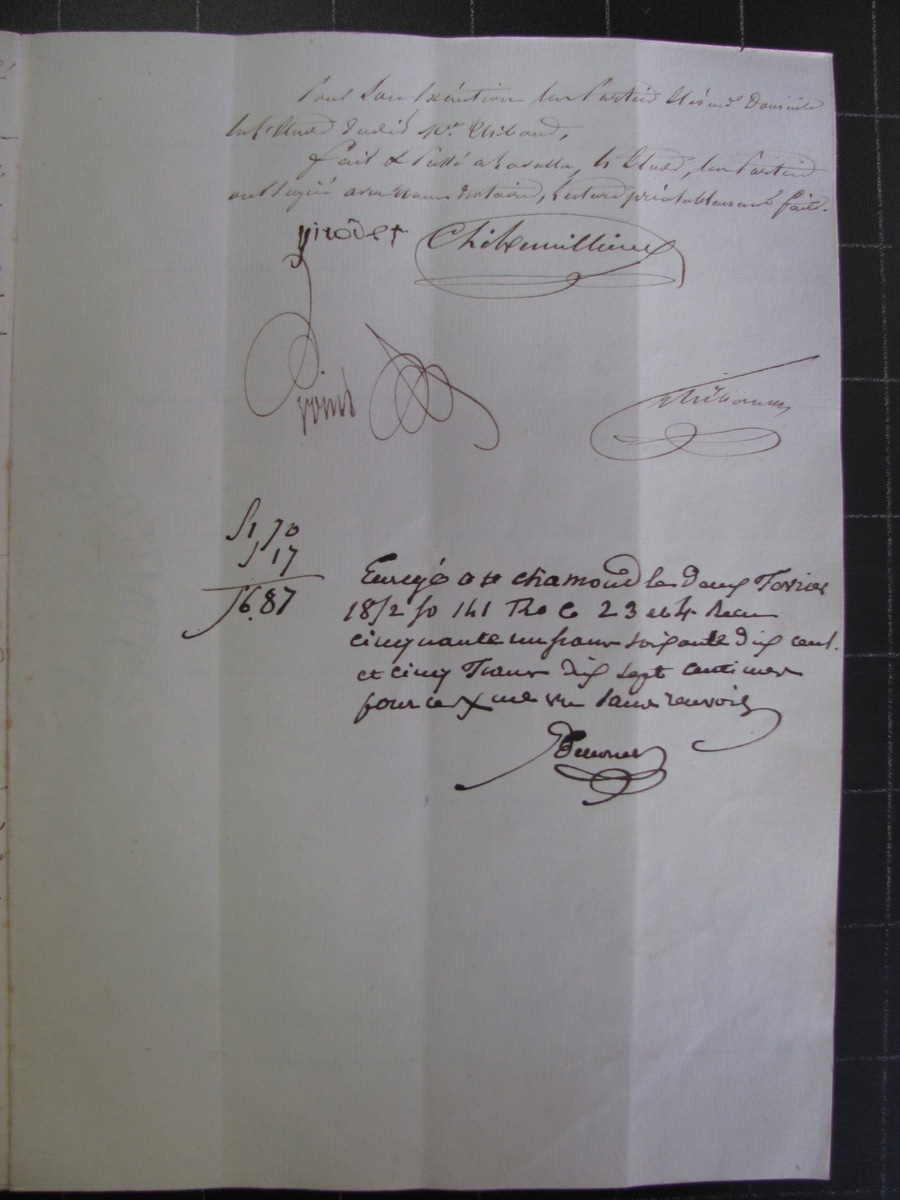 Pour Son Exécution les Parties Elisent Domicile
En l'Etude dudit Me. Thibaud,
fait & Passé a Lavalla, En l'Etude, les Parties
ont signé avec nous Notaires, Lecture préalablement faite.
virodet
point
Thibaud
51 70
5 17
56.87
Enregé a St chamond le deux Fevrier
1852 fo 141 Ro C 23 et 4 Recu
cinquante un francs soixante dix cent.
et cinq Francs dix sept centimes
pour le Xme vu Sans renvois